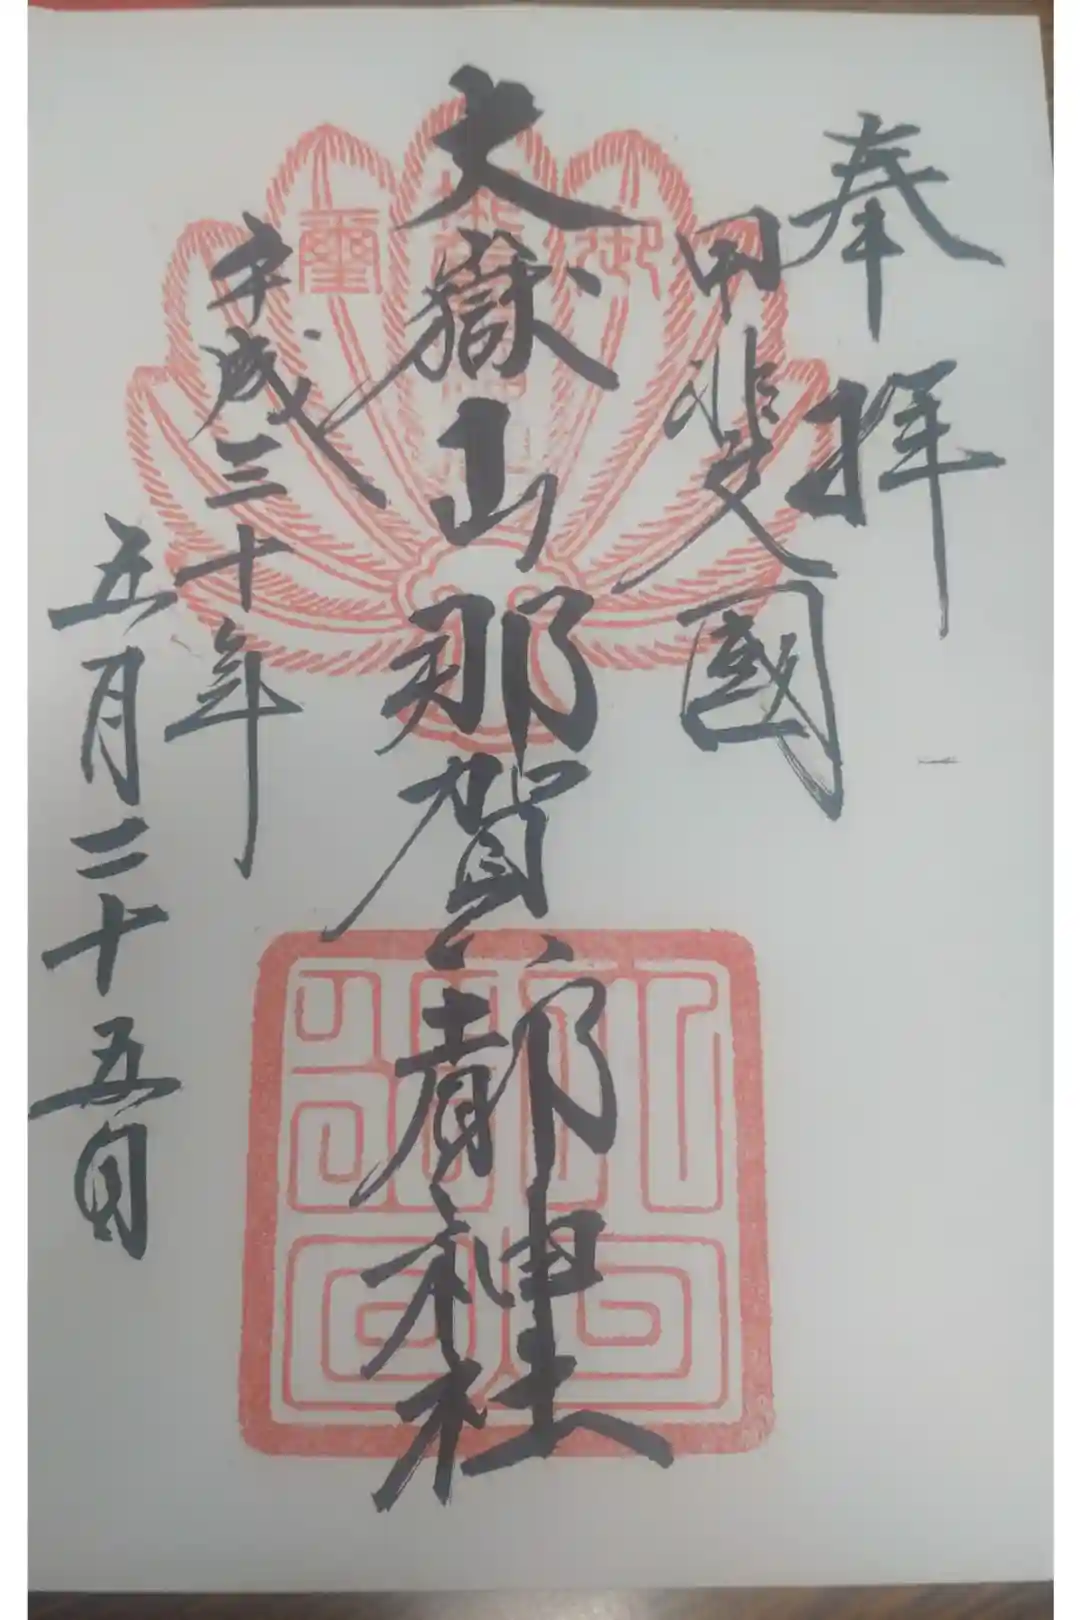 奉拝
甲斐國
大嶽山那賀都神社
平成三十年
五月二十五日
御
璽